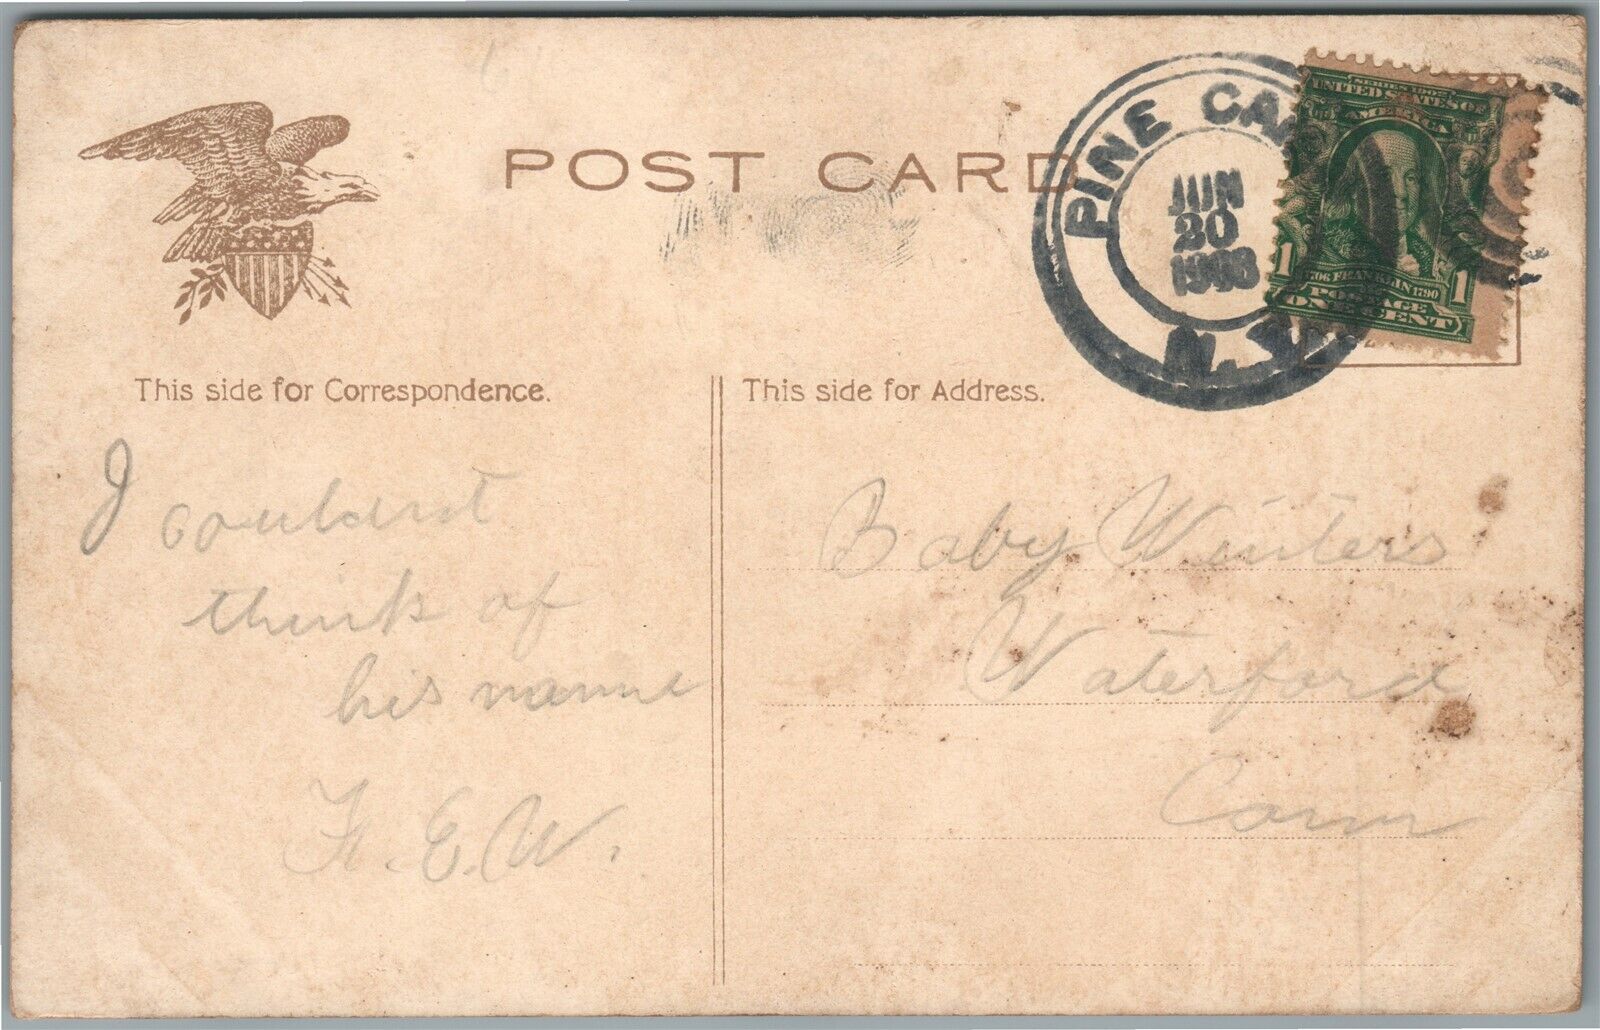 POST CARD
PINE CA
JUN
20
1908
N.Y.
SERIES 1902
UNITED STATES OF
AMERICA
1 1
1706 FRANKLIN 1790
POSTAGE
ONE CENT
This side for Correspondence.
This side for Address.
I couldnt
think of
his name
H.E.W.
Baby Winters
Waterford
Conn